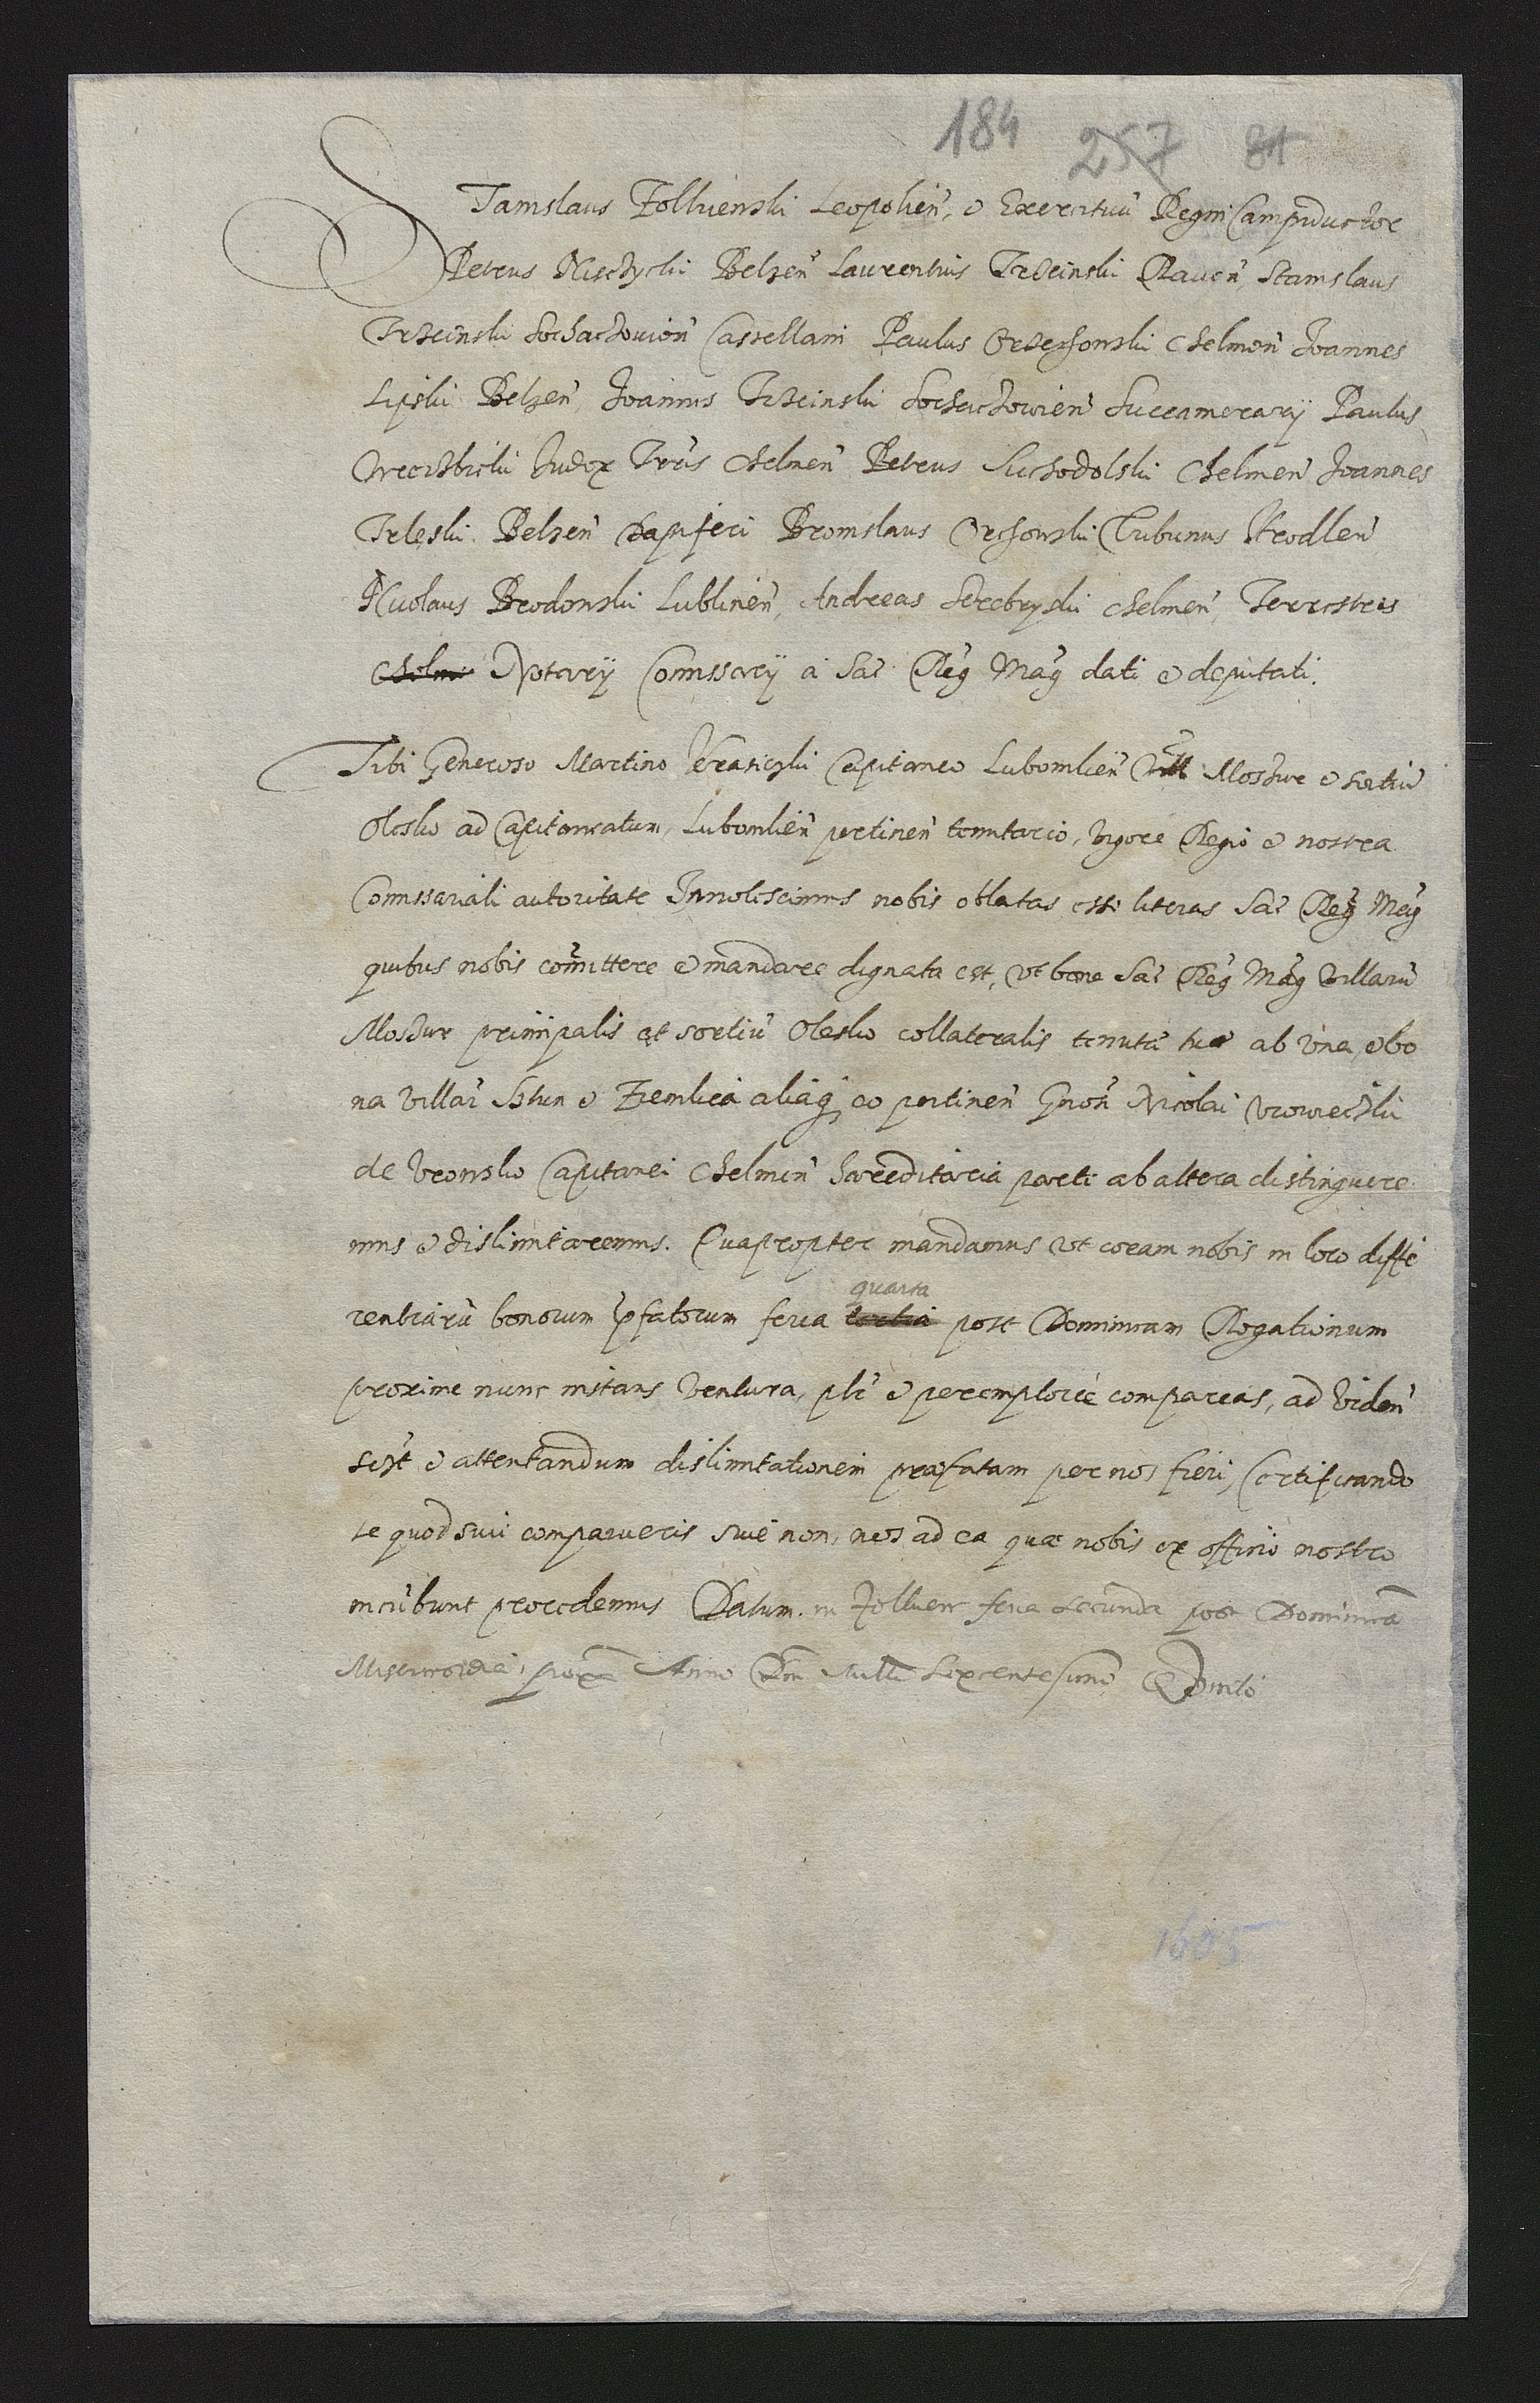 184 257 81
Stanislaus Zolkiewski Leopolien̄, et Exercituū Regni Campiductor
Petrus Miączyċki Belzen̄ Laurentius Trzcinski Raven̄, Stanislaus
Trzcinski Sochaczovien̄ Castellani Paulus Orzechowski Chelmen̄ Joannes
Lipski Belzen̄, Joannes Trzcinski Sochaczowien̄ Succamerarij Paulus
Judex Trr̄is Chelmen̄ Petrus Suchodolski Chelmen̄ Joannes
Trleski Belzen̄ Dapiferi Bronislaus Orchowski Tribunus Hrodlen̄
Nicolaus Brodowski Lublinen̄, Andreas Serebryski Chelmen̄, Terrestris
Chelmen̄ Notarij Com̄issarij a Sac̄ Reḡ Maḡ dati et deputati.
Tibi Generoso Martino Krasiczki Capitaneo Lubomlien̄ Vill Moszur et sortiū
Olesko ad Capitaneatum, Lubomlien̄ pertinen̄ tenutario, vigore Regio et nostra
Com̄issariali autoritate Innotescimus nobis oblatas esse literas Sac̄ Reḡ Maḡ
quibus nobis com̄ittere et mandare dignata est, ut bona Sac̄ Reḡ Maḡ villarū
Moszur principalis et sortiū Olesko collateralis tenutæ tuæ ab una, et bo
na villar̄ Sztun et Zemlica aliaq̨ eo pertinen̄ Gn̄osi Nicolai Urowieczki
de Uronsko Capitanei Chelmen̄ haereditaria parte ab altera distinguere
mus et dislimitaremus. Quapropter mandamus ut coram nobis in loco diffe
rentiarū bonorum p̄fatorum feria tertia quarta post Dominicam Rogationum
proxime nunc instans ventura, pl̄r et peremptorie compareas, ad viden̄
sci̅t et attentandum dislimitationem praefatam per nos fieri, Certificando
te quod sivi comparueris sive non, nos ad ea quae nobis ex officio nostro
incūbunt procedemus Datum in Zolkiew feria secunda post Dominicā
Misericordiæ, prox̄a Anno Dn̄i Mill̄o Sexcentesimo Quinto
1605